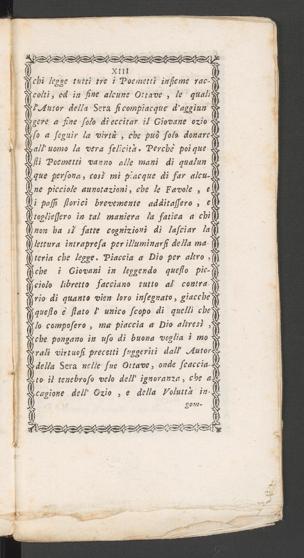 XIII
chi legge tutti tre i Poemetti insieme rac-
colti, ed in fine alcune Ottave, le quali
l'Autor della Sera si compiacque d'aggiun
gere a fine solo di eccitar il Giovane ozio
so a seguir la virtù, che può solo donare
all'uomo la vera felicità. Perchè poi que
sti Poemetti vanno alle mani di qualun
que persona, così mi piacque di far alcu-
ne picciole annotazioni, che le Favole, e
i passi storici brevemente additassero, e
togliessero in tal maniera la fatica a chi
non ha sì fatte cognizioni di lasciar la
lettura intrapresa per illuminarsi della ma-
teria che legge. Piaccia a Dio per altro,
che i Giovani in leggendo questo pic-
ciolo libretto facciano tutto al contra-
rio di quanto vien loro insegnato, giacchè
questo è stato l'unico scopo di quelli che
lo composero, ma piaccia a Dio altresì,
che pongano in uso di buona voglia i mo
rali virtuosi precetti suggeriti dall'Autor
della Sera nelle sue Ottave, onde scaccia-
to il tenebroso velo dell'ignoranza, che a
cagione dell'Ozio, e della Voluttà in-
gom-